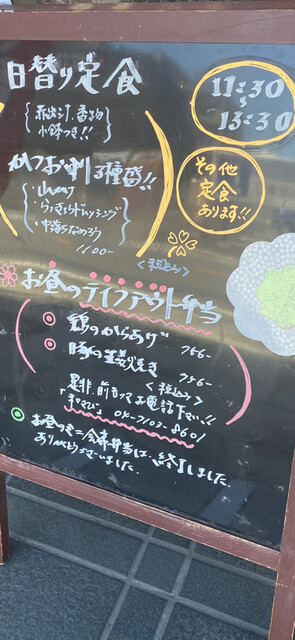 日替り定食
11:30
〜
13:30
赤出汁、香の物
小鉢つき!!
かつお刺3種盛!!
山かけ
らっきょうドレッシング
中落ちなめろう
1100-
<税込み>
その他
定食
あります!!
お昼のテイクアウト弁当
鶏のからあげ 756-
豚の生姜焼き 756-
<税込み>
是非、前もってお電話下さい!!
04-7103-8601
お昼の ミニ会席弁当は、終了しました。
ありがとうございました。